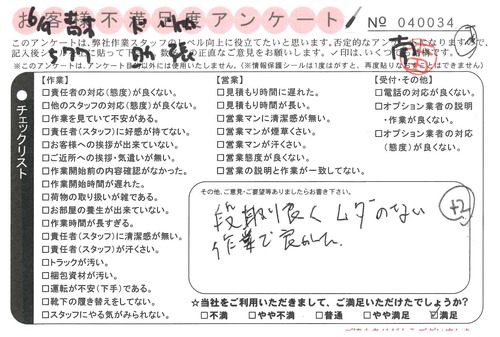 お客様不満足度アンケート
№ 040034
このアンケートは、弊社作業スタッフのレベル向上に役立てたいと思います。否定的なアン
記入後シールに貼って下
の正直なご意見をお願いします。✓印は、いくつ
※このアンケートは、アンケート目的以外には使用しません。(※情報保護シールは1度はがすと、再度貼りなおすことはできません)
チェックリスト
【作業】
□責任者の対応(態度)が良くない。
□他のスタッフの対応(態度)が良くない。
□作業を見ていて不安がある。
□責任者(スタッフ)に好感が持てない。
□お客様への挨拶が出来ていない。
□ご近所への挨拶・気遣いが無い。
□作業開始前の内容確認がなかった。
□作業開始時間が遅れた。
□荷物の取り扱いが雑である。
□お部屋の養生が出来ていない。
□作業時間が長すぎる。
□責任者(スタッフ)に清潔感が無い。
□責任者(スタッフ)が汗くさい。
□トラックが汚い。
□梱包資材が汚い。
□運転が不安(下手)である。
□靴下の履き替えをしてない。
□スタッフにやる気がみられない。
【営業】
□見積もり時間に遅れた。
□見積もり時間が長い。
□営業マンに清潔感が無い。
□営業マンが煙草くさい。
□営業マンが汗くさい。
□営業態度が良くない。
□営業の説明と作業が一致してない。
【受付・その他】
□電話の対応が良くない。
□オプション業者の説明
・作業が良くない。
□オプション業者の対応
(態度)が良くない。
その他、ご意見・ご要望等ありましたらお書き下さい。
段取り良くムダのない
作業で良かった。
+2
☆当社をご利用いただきまして、ご満足いただけたでしょうか?
□不満 □やや不満 □普通 □やや満足 ☑満足